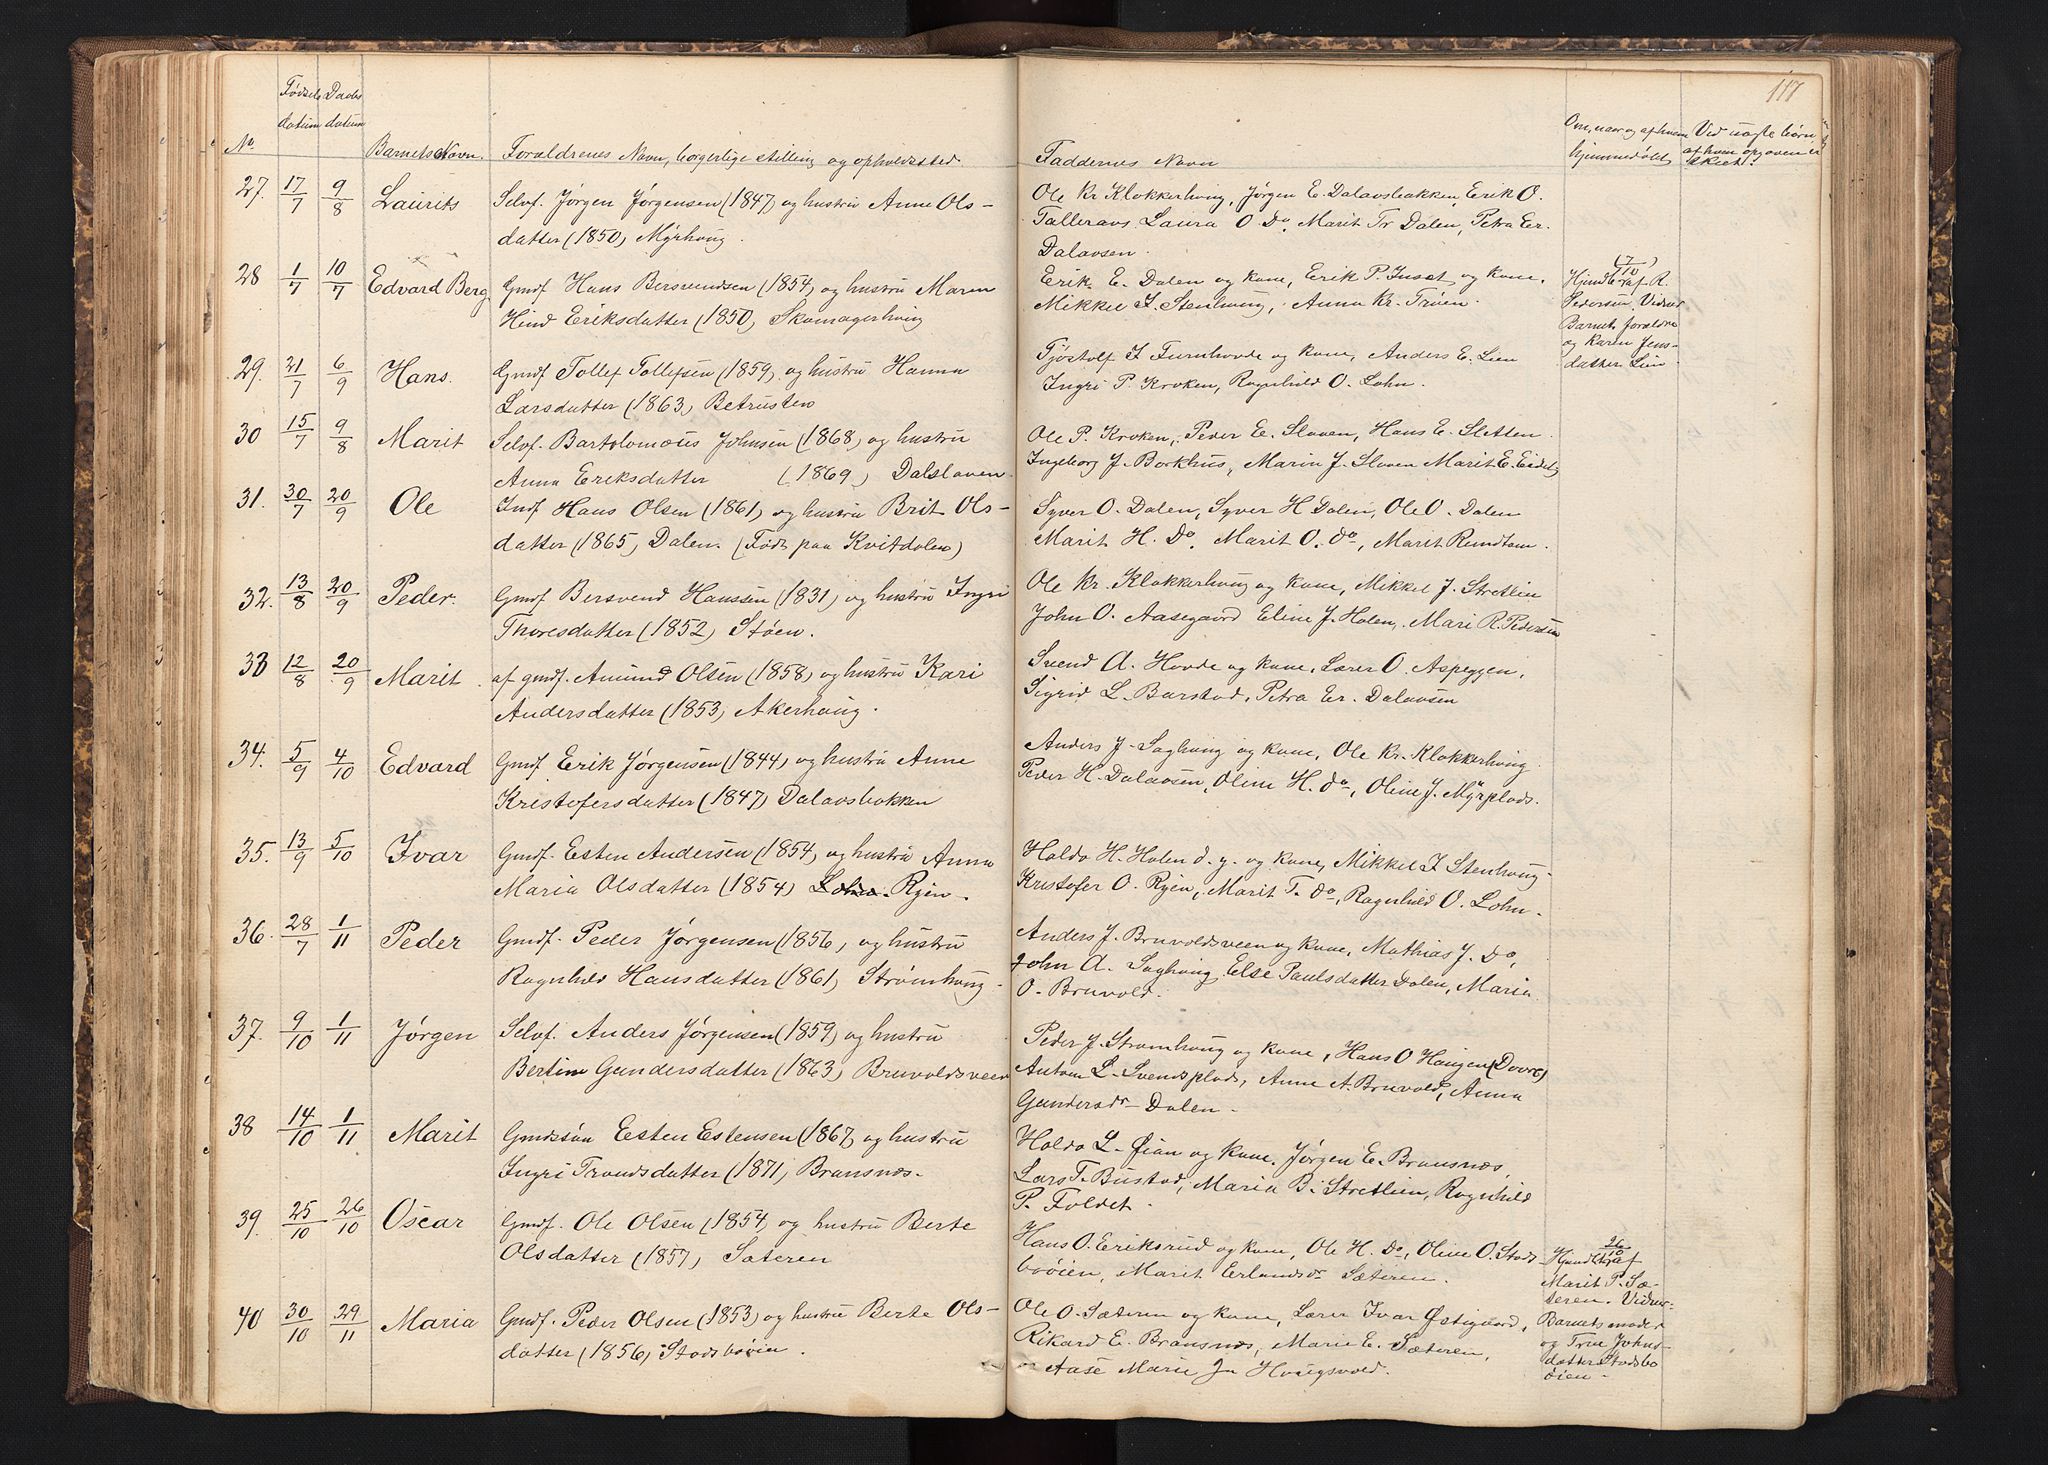 117
No
Fødsels
datum
Daabs
datum
Barnets Navn.
Forældrenes Navn, borgerlige stilling og opholdssted.
Faddernes Navn
Om, naar og af hvem
hjemmedøbt
Ved uægte børn
af hvem opgaven er
skeet.
27. 17/7 9/8 Laurits
Selvf. Jørgen Jørgensen (1847) og hustru Anne Ols-
datter (1850) Myrhaug.
Ole Kr Klokkerhaug, Jørgen E. Dalavsbakken, Erik O.
Talleraas Laura O Do, Marit Tr Dalen, Petra Er.
Dalavsen.
28 1/7 10/7 Edvard Berg
Gmdf Hans Bersvendsen (1854) og hustru Maren
Hind Eriksdatter (1850) Skomagerhaug
Erik E. Dalen og kone, Erik P. Inset og kone,
Mikkel J. Stenhaug, Anna Kr. Troen.
(7/10)
Hjmdbt af R.
Pedersen. Vidner
Barnets forældre
og Karen Jens-
datter Lien
29. 21/7 6/9 Hans.
Gmdf Tollef Tollefsen (1859) og hustru Hanna
Larsdatter (1863) Betrusten
Tjøstolf J Furuhovde og kone, Anders E. Lien
Ingri P. Kroken, Ragnhild O. Lohn.
30 15/7 9/8 Marit
Selvf. Bartolomæus Johnsen (1868) og hustru
Anna Eriksdatter (1869) Dalslaaen
Ole P. Kroken, Peder E. Slaaen, Hans E. Sletten
Ingeborg J. Borkhus, Marin J. Slaaen Marit E. Eidet
31. 30/7 20/9 Ole
Indf Hans Olsen (1861) og hustru Brit Ols-
datter (1865) Dalen. (Født paa Kvitdalen)
Syver O. Dalen, Syver H Dalen, Ole O. Dalen
Marit H. Do. Marit O. do, Marit Rundtom.
32. 13/8 20/9 Peder.
Gmdf Bersvend Hanssen (1831) og hustru Ingri
Thoresdatter (1852) Støen.
Ole Kr. Klokkerhaug og kone, Mikkel J. Stretlien
John O. Aasegaard Eline J. Holen, Mari R. Pedersen
33 12/8 20/9 Marit
af gmdf. Amund Olsen (1858) og hustru Kari
Andersdatter (1853) Akerhaug.
Svend A. Hovde og kone, Lærer O. Aspeggen,
Sigrid L. Barstad, Petra Er. Dalavsen
34. 5/9 4/10 Edvard
Gmdf Erik Jørgensen (1844) og hustru Anne
Kristofersdatter (1847) Dalavsbakken
Anders J. Saghaug og kone, Ole Kr. Klokkerhaug
Peder H. Dalavsen, Oline H. do, Oline J. Myrplads.
35. 13/9 5/10 Ivar
Gmdf. Esten Andersen (1854) og hustru Anna
Maria Olsdatter (1854) Ryen.
Haldo H. Holen d. y. og kone, Mikkel J Stenhaug
Kristofer O. Ryen, Marit T. do, Ragnhild O. Lohn.
36. 28/7 1/11 Peder
Gmdf. Peder Jørgensen (1856) og hustru
Ragnhild Hansdatter (1861) Strømhaug.
Anders J. Bruvoldsveen og kone, Mathias J. Do,
John A. Saghaug, Else Paulsdatter Dalen, Maria
O. Bruvold.
37. 9/10 1/11 Jørgen
Selvf. Anders Jørgensen (1859) og hustru
Bertine Gundersdatter (1863) Bruvoldsveen
Peder J. Strømhaug og kone, Hans O Haugen (Dovre)
Antom L. Svendsplads, Anne A. Bruvold, Anna
Gundersdr Dalen.
38 14/10 1/11 Marit
Gmdssøn Eesten Estensen (1867) og hustru
Ingri Trondsdatter (1871) Bransnæs.
Haldo L. Øian og kone, Jørgen E. Bransnæs,
Lars T. Bustad, Maria B. Stretlien, Ragnhild
P. Foldet.
39. 25/10 26/10 Oscar
Gmdf. Ole Olsen (1854) og hustru Berte
Olsdatter (1857) Sæteren
Hans O. Eriksrud og kone, Ole H. Do, Oline O. Stads
bøien, Marit Erlandsdr Sæteren.
26/10
Hjmdbt af
Marit P. Sæ-
teren. Vidner
Barnets moder
og Trine Johns-
datter Stadsbø
øien.
40 30/10 29/11 Maria
Gmdf. Peder Olsen (1853) og hustru Berte Ols-
datter (1856) Stadsbøien.
Ole O. Sæteren og kone, Lærer Ivar Østigaard,
Rikard E. Bransnæs, Marie E. Sæteren,
Aase Marie Jn Haugsvold.